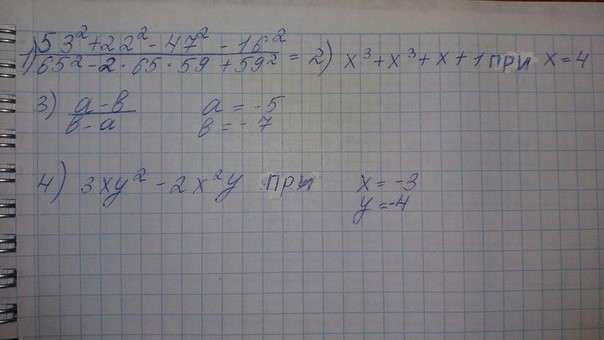 1) (53² + 22² - 47² - 16²) / (65² - 2 · 65 · 59 + 59²) =
2) x³ + x³ + x + 1 при x = 4
3) (a - в) / (в - a) a = -5
в = -7
4) 3xy² - 2x²y при x = -3
y = -4